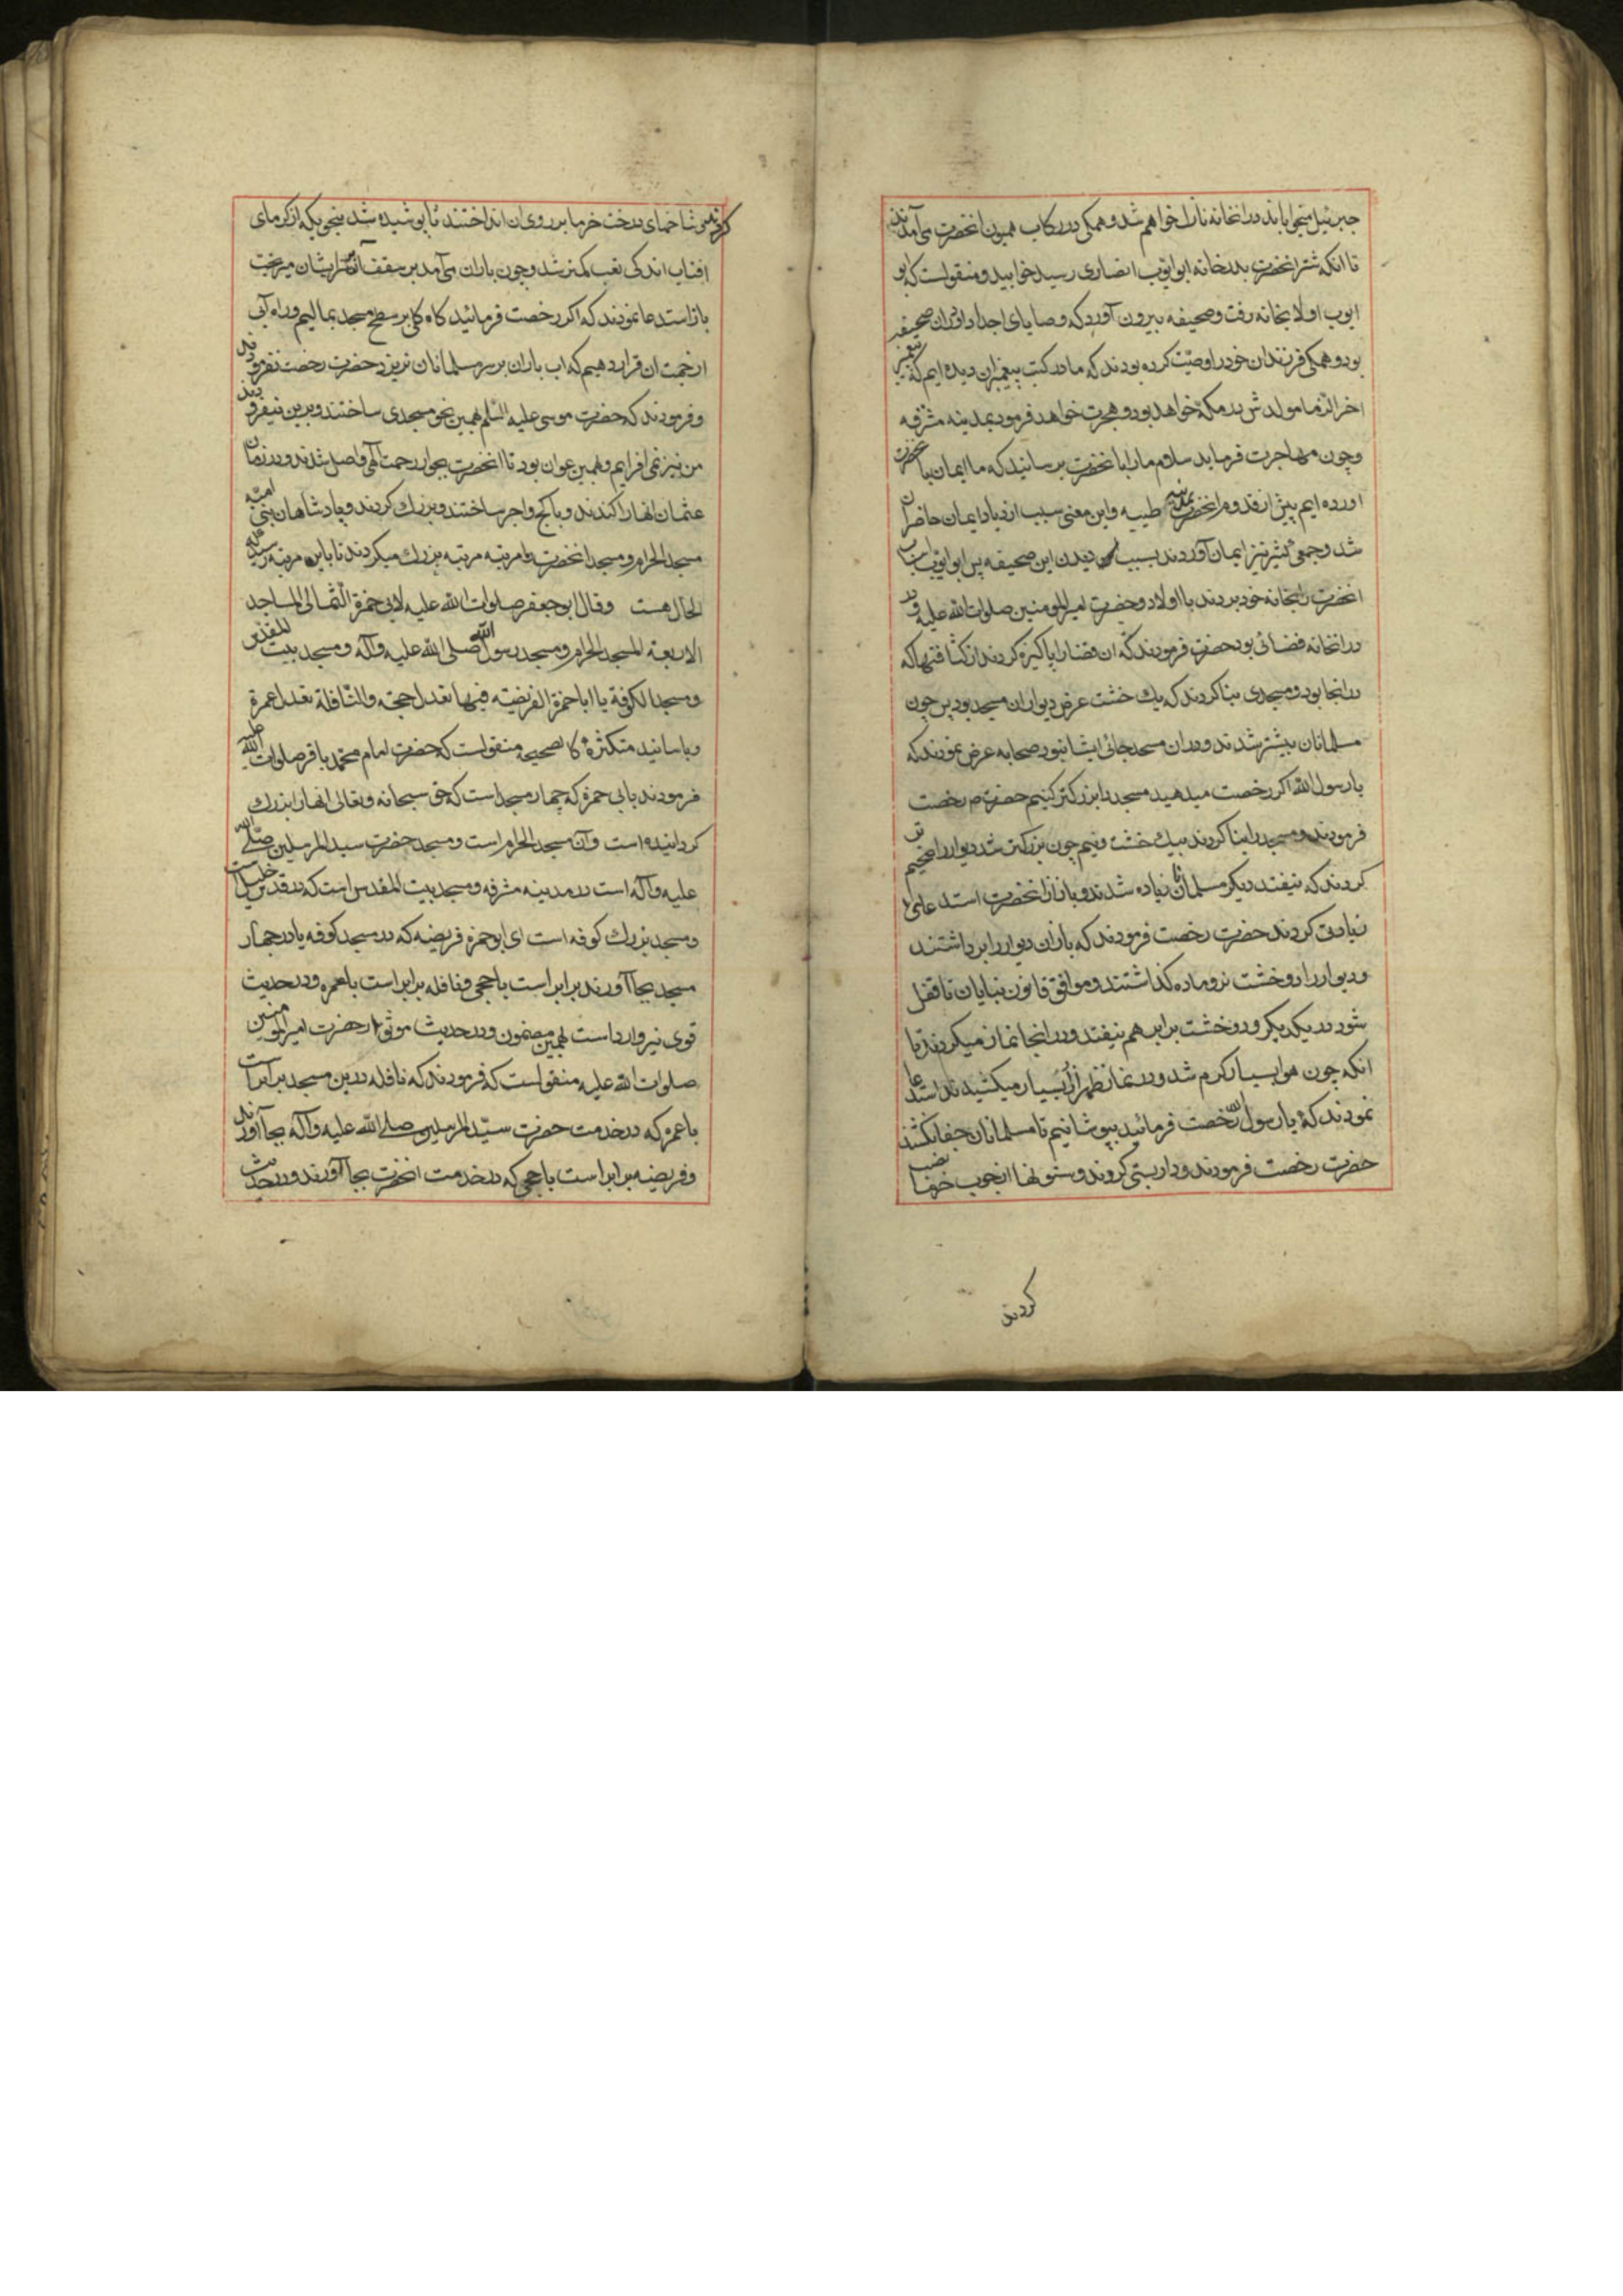 جبرئیل میخواباند در انخانه نازل خواهم شد و همکی در رکاب همیون انحضرت می آمدند
تا انکه شتر انحضرت بدر خانه ابو ایوب انصاری رسید خوابید و منقولست که ابو
ایوب اولا بخانه رفت و صحیفه بیرون آورد که وصایای اجداد او در ان صحیفه
بود و همکی فرزندان خود را وصیّت کرده بودند که ما در کتب پیغمبران دیده ایم که پیغمبر
اخر الزمان مولدش در مکّه خواهد بود و هجرت خواهد فرمود بمدینه مشرّفه
و چون مهاجرت فرماید سلام ما را با نحضرت برسانید که ما ایمان بانحضرت
اورده ایم پیش از قدوم انحضرت بمدینه طیبه و این معنی سبب ازدیاد ایمان حاضران
شد و جمعی کثیر نیز ایمان آوردند بسبب دیدن این صحیفه پس ابو ایوب اسباب
انحضرت را بخانه خود بردند با اولاد و حضرت امیر المومنین صلوات الله علیه و در
در انخانه فضائی بود حضرت فرمودند که ان فضا را پاکیزه کردند از کثافتها که
در انجا بود و مسجدی بنا کردند که یك خشت عرض دیوار ان مسجد بود پس چون
مسلمانان بیشتر شدند و در ان مسجد جائی ایشان نبود صحابه عرض نمودند که
یا رسول الله اکر رخصت میدهید مسجد را بزرکتر کنیم حضرت م رخصت
فرمودند و مسجد را بنا کردند بیك خشت و نیم چون بزرکتر شد دیوار را ضخیم تر
کردند که نیفتد دیکر مسلمانان زیاده شدند و باز از انحضرت استدعای
زیادتی کردند حضرت رخصت فرمودند که باز ان دیوار را برداشتند
و دیوار را دو خشت نر و ماده کذاشتند و موافق قانون بنایان تا قفل
شود در یکدیکر و دو خشت برابر هم نیفتد و در انجا نماز میکردند تا
انکه چون هوا بسیار کرم شد و در نماز ظهر ازار بسیار میکشیدند استدعا
نمودند که یا رسول الله رخصت فرمائید بپوشانیم تا مسلمانان جفا نکشند
حضرت رخصت فرمودند و داربستی کروند و ستونها از چوب خرما نصب
کردند
کردند پس شاخهای درخت خرما بر روی ان انداختند تا پوشیده شد بنحویکه از کرمای
افتاب اندکی تعب کمتر شد و چون باران می آمد بر سقف آن بر سر ایشان میریخت
باز استدعا نمودند که اکر رخصت فرمائید کاه کل بر سطح مسجد بمالیم و راه آبی
از جهت ان قرار دهیم که اب باران بر سر مسلمانان نریزد حضرت رخصت نفرمودند
و فرمودند که حضرت موسی علیه السّلم بهمین نحو مسجدی ساختند و برین نیفزودند
من نیز نمی افزایم و بهمین عنوان بود تا انحضرت بجوار رحمت الهی واصل شدند و در زمان
عثمان انها را کندند و با کچ و اجر ساختند و بزرك کردند و پادشاهان بنی امیّه
مسجد الحرام و مسجد انحضرت را مرتبه مرتبه بزرك میکردند تا باین مرتبه رسید که
الحال هست و قال ابو جعفر صلوات الله علیه لابی حمزة الثّمالی المساجد
الاربعة المسجد الحرام و مسجد رسول الله صلی الله علیه وآله و مسجد بیت المقدس
و مسجد الکوفة یا ابا حمزة الفریضة فیها تعدل حجّة والنّافلة تعدل عمرة
و باسانید متکثره کالصحیحه منقولست که حضرت امام محمّد باقر صلوات الله علیه
فرمودند بابی حمزه که چهار مسجد است که حق سبحانه و تعالی انها را بزرك
کردانیده است و آن مسجد الحرام است و مسجد حضرت سید المرسلین صلّی الله
علیه وآله است در مدینه مشرفه و مسجد بیت المقدس است که در قدس خلیل است
و مسجد بزرك کوفه است ای ابو حمزه فریضه که در مسجد کوفه یا در چهار
مسجد بجا آورند برابر است با حجی و نافله برابر است با عمره و در حدیث
قوی نیز وارد است بهمین مضمون و در حدیث موثق از حضرت امیر المومنین
صلوات الله علیه منقولست که فرمودند که نافله درین مسجد برابر است
با عمره که در خدمت حضرت سیّد المرسلین صلی الله علیه وآله بجا آورند
و فریضه برابر است با حجی که در خدمت انحضرت بجا آورند و در حدیث